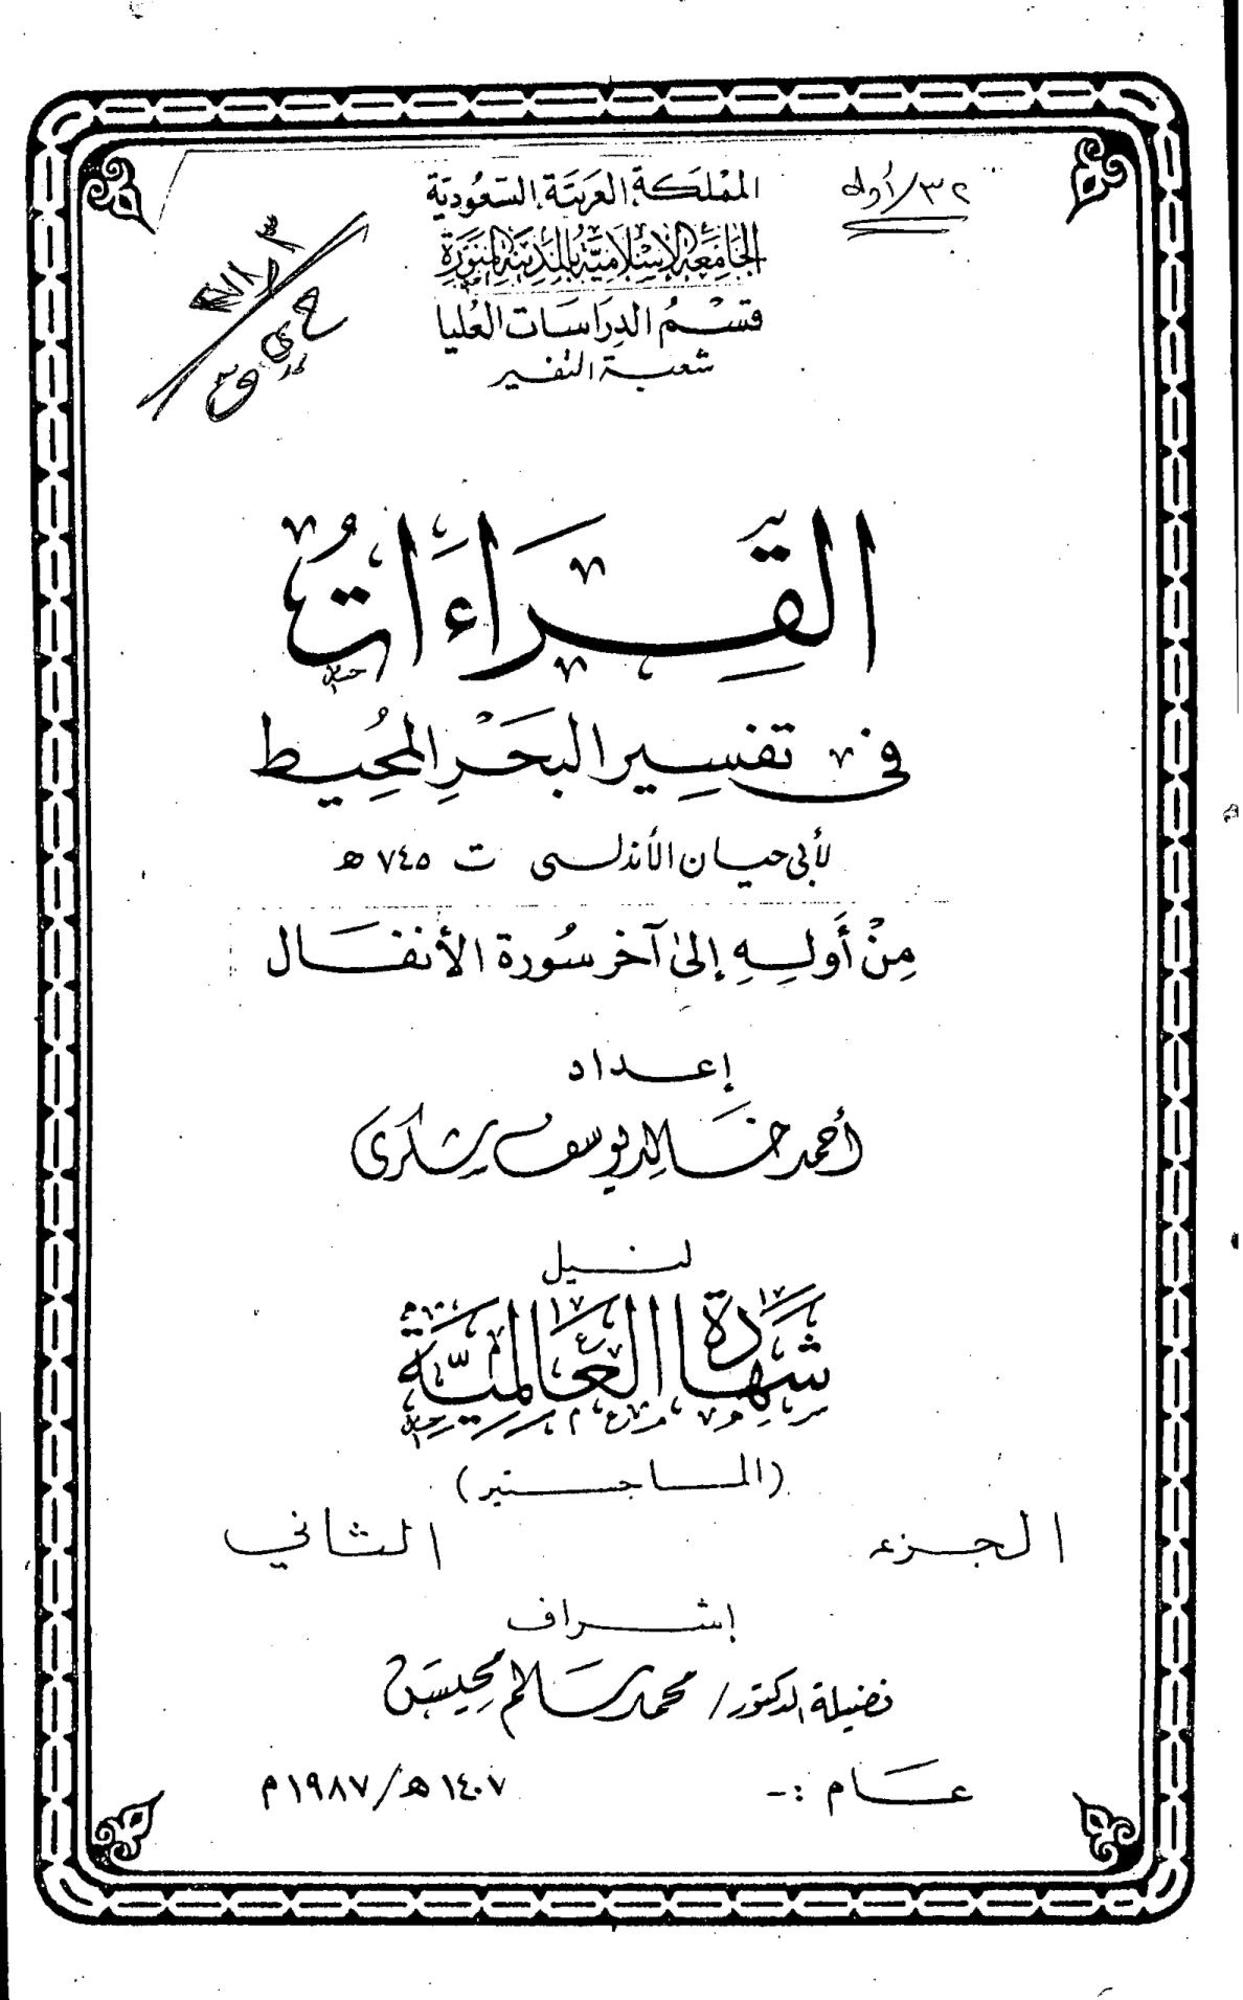 المملكة العربية السعودية
الجامعة الإسلامية بالمدينة المنورة
قسم الدراسات العليا
شعبة التفسير
القِرَاءَاتُ
فى تفسِير البَحْرِ المُحِيط
لأبى حيان الأندلسى ت ٧٤٥ هـ
مِنْ أَولِهِ إلىٰ آخر سُورة الأنفال
إعداد
أحمد خالد يوسف شكرى
لنيل
شهادة العَالمِيَّة
(الماجستير)
الجزء الثاني
إشراف
فضيلة الدكتور/ محمد سالم محيسن
عام :-
١٤٠٧ هـ/١٩٨٧ م